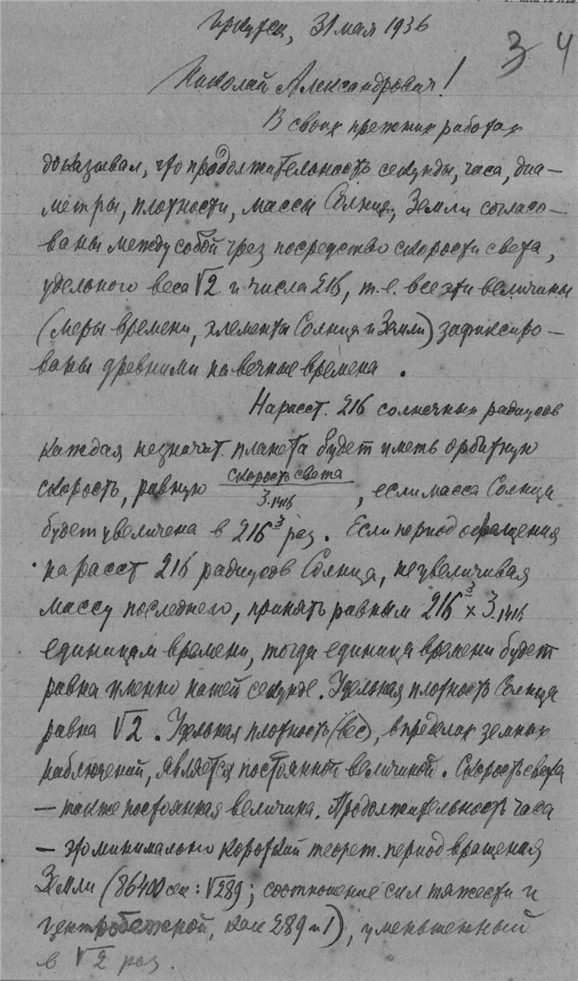 Иркутск, 31 мая 1936
34
Николай Александрович!
В своих прежних работах
доказывал, что продолжительность секунды, часа, диа-
метры, плотности, массы Солнца, Земли согласо-
ваны между собой чрез посредство скорости света,
удельного веса √2 и числа 216, т.е. все эти величины
(меры времени, элементы Солнца и Земли) зафиксиро-
ваны древними на вечные времена.
На расст. 216 солнечных радиусов
каждая незначит. планета будет иметь орбитную
скорость, равную скорость света / 3.1416, если масса Солнца
будет увеличена в 216³ раз. Если период обращения
на расст 216 радиусов Солнца, не увеличивая
массу последнего, принять равным 216³ × 3.1416
единицам времени, тогда единица времени будет
равна именно нашей секунде. Удельная плотность Солнца
равна √2. Удельная плотность (вес), в пределах земных
наблюдений, является постоянной величиной. Скорость света
– также постоянная величина. Продолжительность часа
– это минимально короткий теорет. период вращения
Земли (86400 сек : √289; соотношение сил тяжести и
центробежной, как 289 и 1), уменьшенный
в √2 раз.